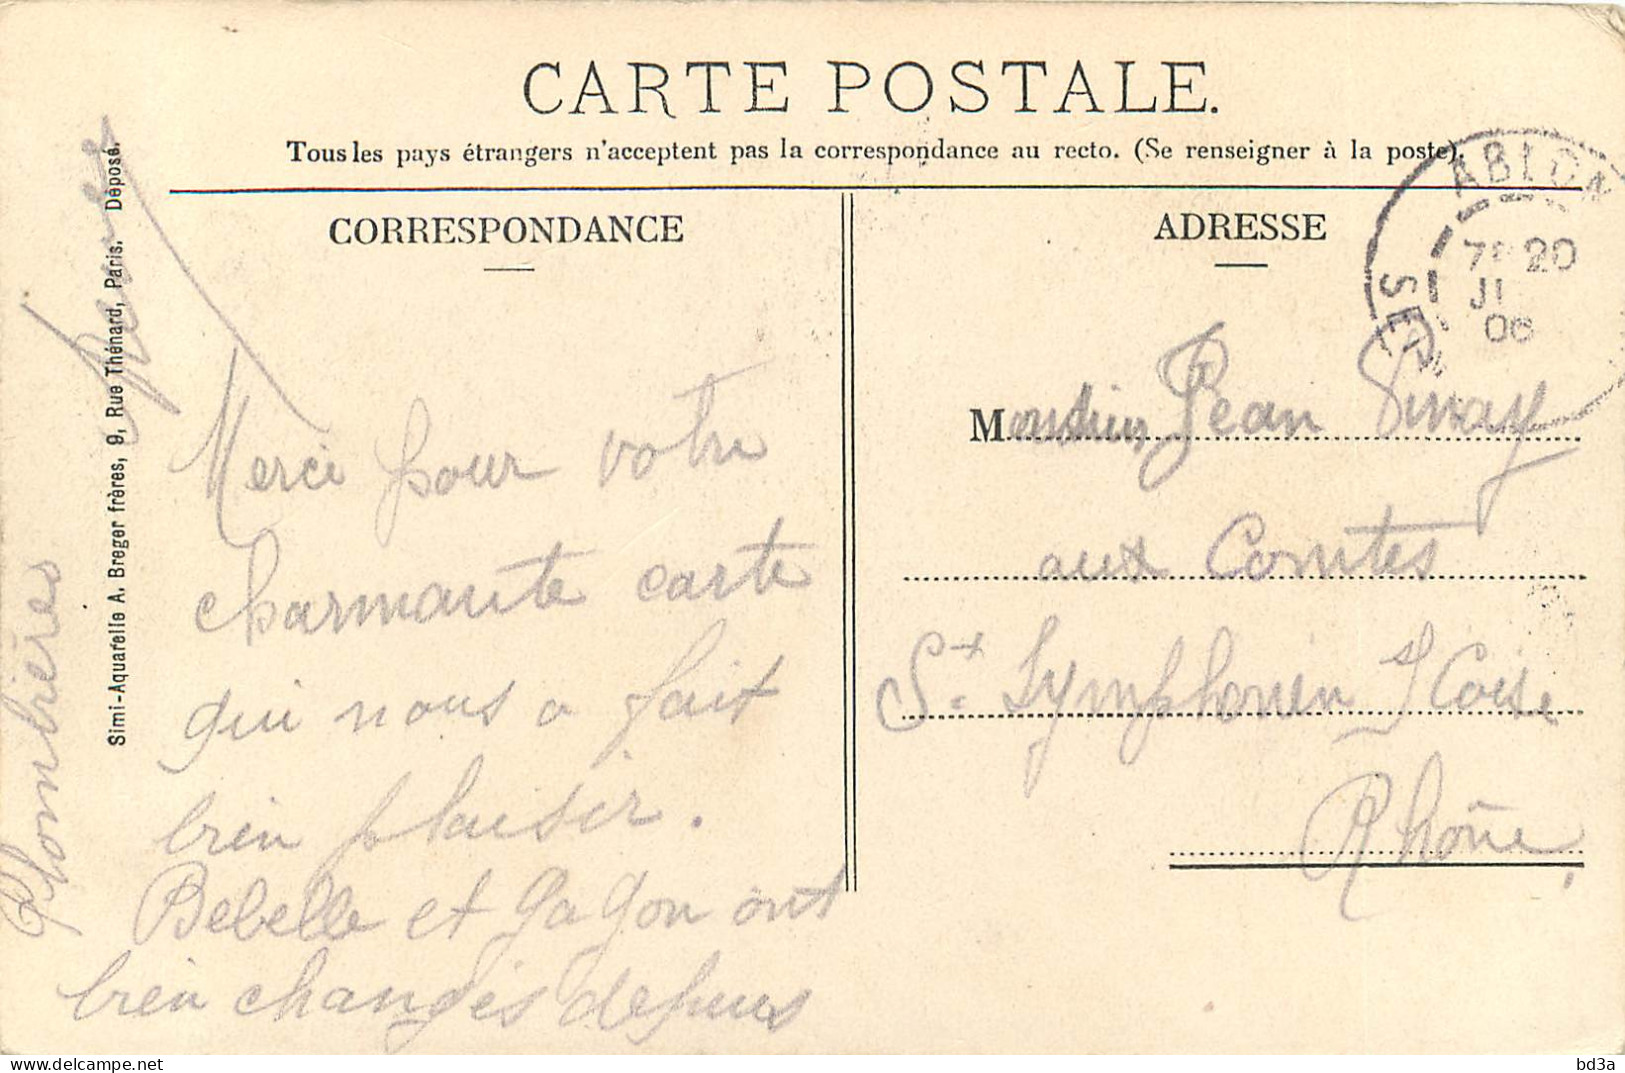 CARTE POSTALE.
Tous les pays étrangers n'acceptent pas la correspondance au recto. (Se renseigner à la poste).
CORRESPONDANCE
Merci pour votre
charmante carte
qui nous a fait
bien plaisir.
Bebelle et Gagon ont
bien changés depuis
Plombières
Simi-Aquarelle A. Breger frères, 9, Rue Thénard, Paris. Déposé.
ADRESSE
Monsieur Jean
aux Comtes
St. Symphorien s/ Coise
Rhône
ABLON
SEINE
20
JI
06
bd3a